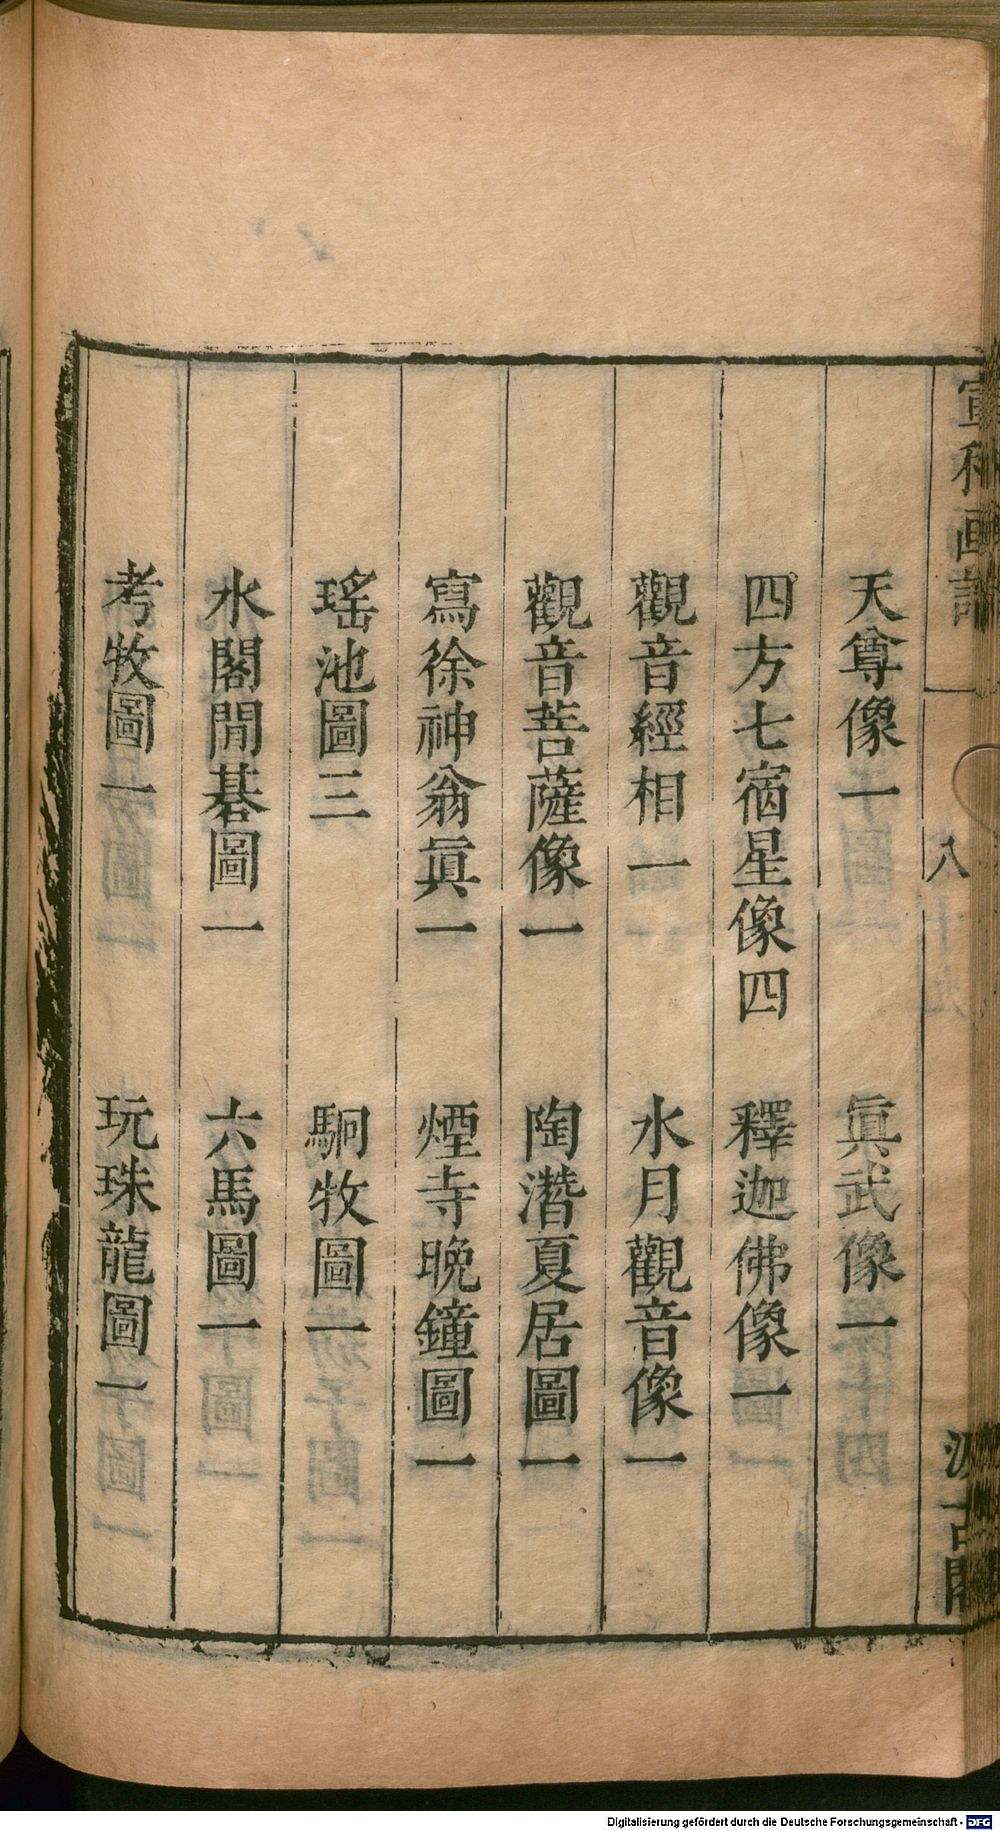 宣和画譜
八
汲古閣
天尊像一　眞武像一
四方七宿星像四　釋迦佛像一
觀音經相一　水月觀音像一
觀音菩薩像一　陶潛夏居圖一
寫徐神翁眞一　煙寺晚鐘圖一
瑤池圖三　駉牧圖一
水閣閒碁圖一　六馬圖一
考牧圖一　玩珠龍圖一
Digitalisierung gefördert durch die Deutsche Forschungsgemeinschaft - DFG